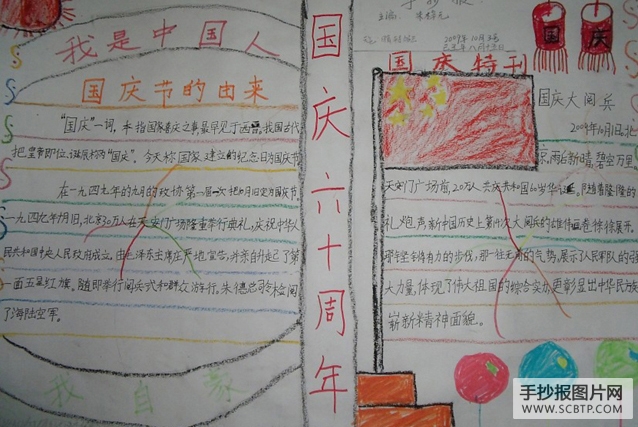 我是中国人
国庆节的由来
"国庆"一词，本指国家喜庆之事，最早见于西晋，我国古代
把皇帝即位、诞辰称为"国庆"。今天称国家建立的纪念日为国庆节
在一九四九年的九月的政协第一届一次
一九四九年
北京30万人在天安门广场隆重举行典礼，庆祝中华人
民共和国中央人民政府成立，由毛泽东主席庄严地宣告，并亲自升起了第
一面五星红旗，随即举行阅兵式和群众游行，朱德总司令检阅
了海陆空军。
我自豪
国庆六十周年
手抄报
主编：
2009年10月
国庆特刊
国庆
国庆大阅兵
2009年10月1日，北
京，雨后新晴，碧空万里
天安门广场前，20万人共庆共和国60岁华诞。伴随着隆隆的
礼炮声，新中国历史上第14次大阅兵的雄伟画卷徐徐展开。
那铿锵有力的步伐，那一往无前的气势，展示了人民军队的强
大力量，体现了伟大祖国的综合实力，更彰显出中华民族
崭新精神面貌。
手抄报图片网
WWW.SCBTP.COM